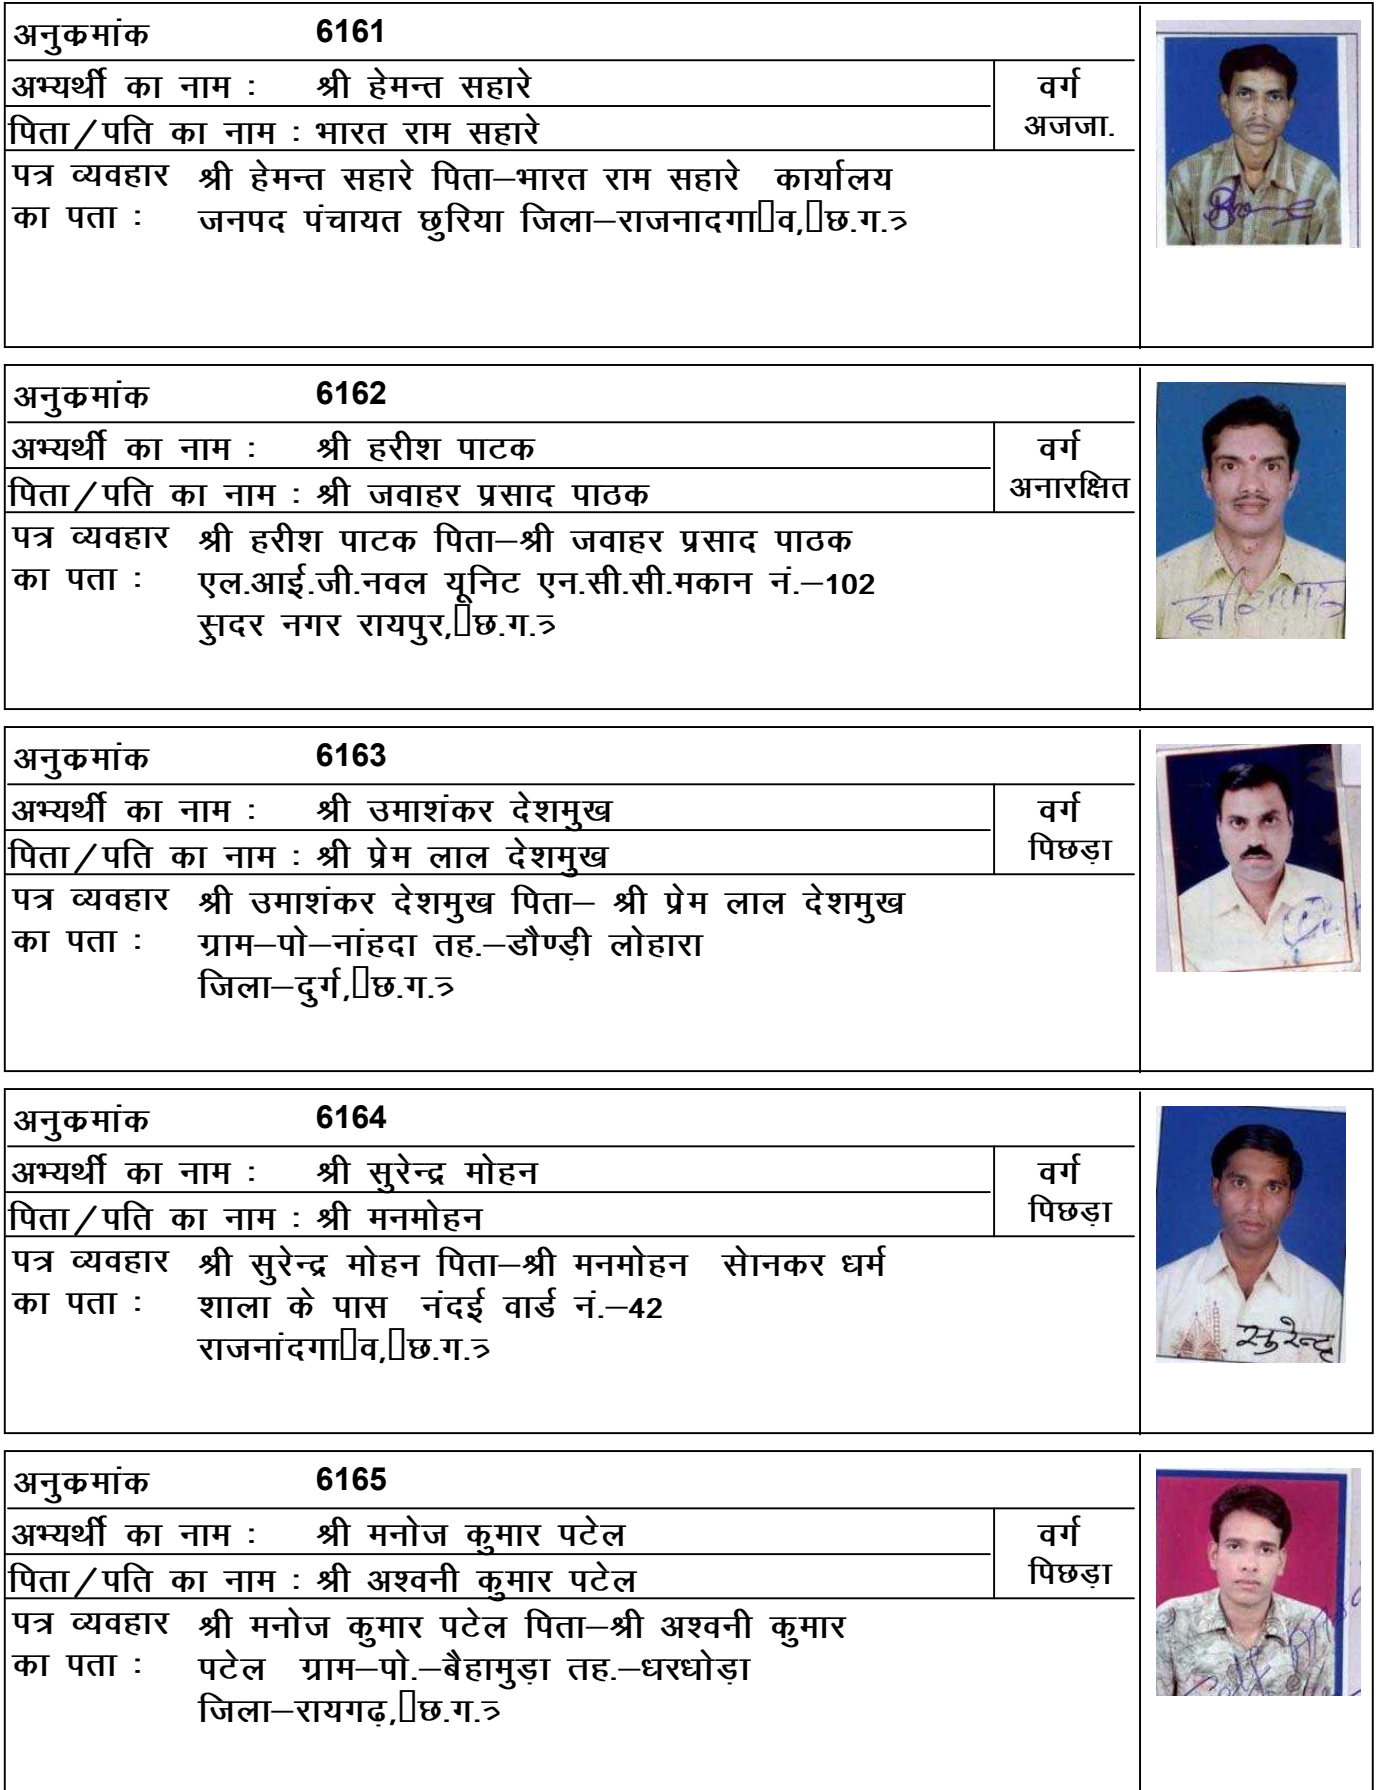 अनुक्रमांक 6161
अभ्यर्थी का नाम : श्री हेमन्त सहारे वर्ग
पिता/पति का नाम : भारत राम सहारे अजजा.
पत्र व्यवहार श्री हेमन्त सहारे पिता–भारत राम सहारे कार्यालय
का पता : जनपद पंचायत छुरिया जिला–राजनादगा▯व,▯छ.ग.त्र
अनुक्रमांक 6162
अभ्यर्थी का नाम : श्री हरीश पाटक वर्ग
पिता/पति का नाम : श्री जवाहर प्रसाद पाठक अनारक्षित
पत्र व्यवहार श्री हरीश पाटक पिता–श्री जवाहर प्रसाद पाठक
का पता : एल.आई.जी.नवल यूनिट एन.सी.सी.मकान नं.–102
सुादर नगर रायपुर,▯छ.ग.त्र
अनुक्रमांक 6163
अभ्यर्थी का नाम : श्री उमाशंकर देशमुख वर्ग
पिता/पति का नाम : श्री प्रेम लाल देशमुख पिछड़ा
पत्र व्यवहार श्री उमाशंकर देशमुख पिता– श्री प्रेम लाल देशमुख
का पता : ग्राम–पो–नांहदा तह.–डौण्ड़ी लोहारा
जिला–दुर्ग,▯छ.ग.त्र
अनुक्रमांक 6164
अभ्यर्थी का नाम : श्री सुरेन्द्र मोहन वर्ग
पिता/पति का नाम : श्री मनमोहन पिछड़ा
पत्र व्यवहार श्री सुरेन्द्र मोहन पिता–श्री मनमोहन सेानकर धर्म
का पता : शाला के पास नंदई वार्ड नं.–42
राजनांदगा▯व,▯छ.ग.त्र
सुरेन्द्र
अनुक्रमांक 6165
अभ्यर्थी का नाम : श्री मनोज कुमार पटेल वर्ग
पिता/पति का नाम : श्री अश्वनी कुमार पटेल पिछड़ा
पत्र व्यवहार श्री मनोज कुमार पटेल पिता–श्री अश्वनी कुमार
का पता : पटेल ग्राम–पो.–बैहामुड़ा तह.–धरधोड़ा
जिला–रायगढ़,▯छ.ग.त्र